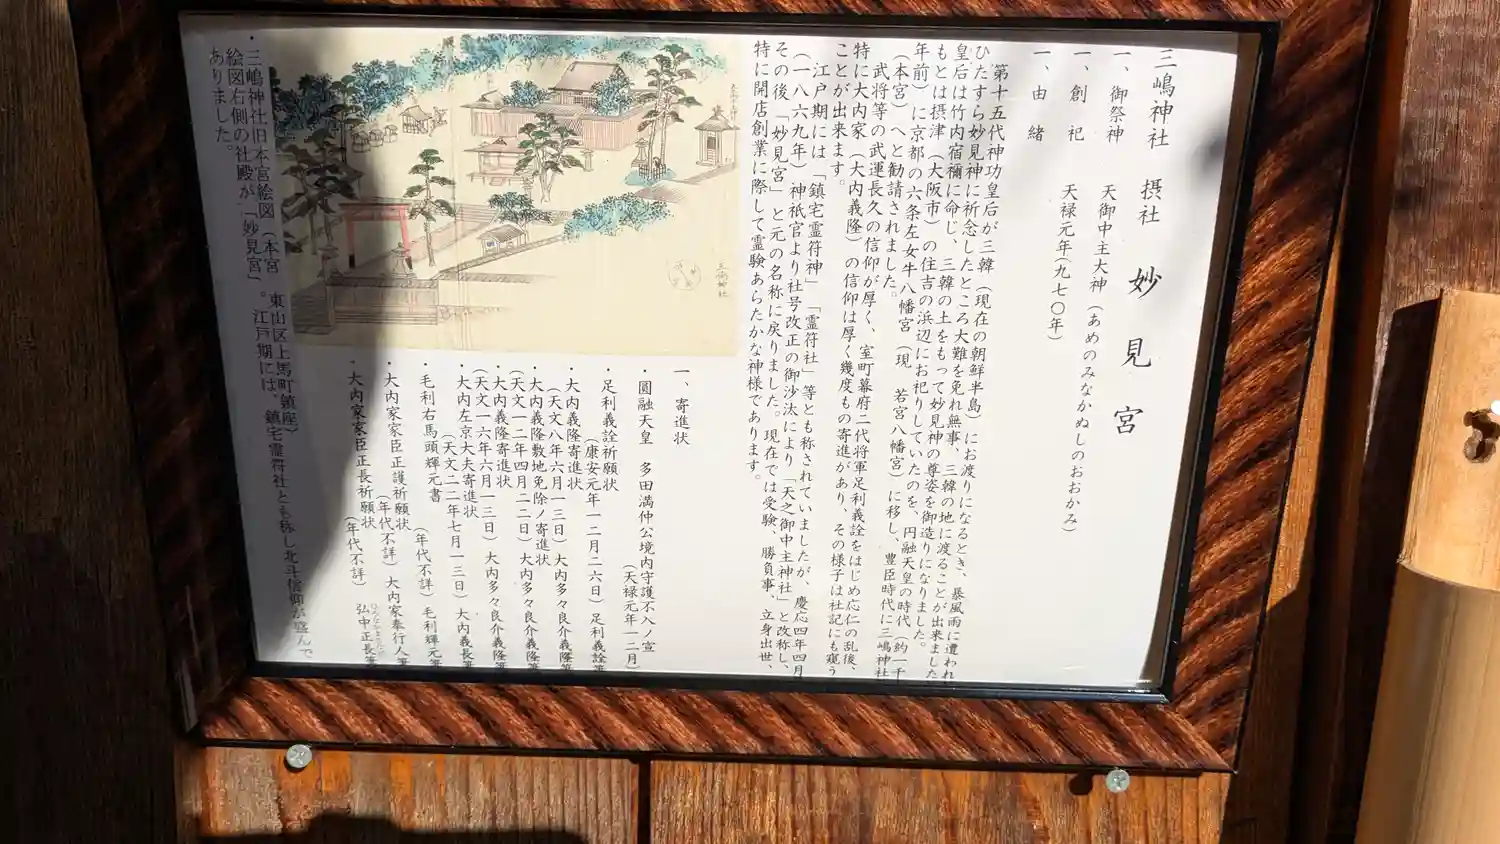 三嶋神社 摂社 妙見宮
一、御祭神 天御中主大神(あめのみなかぬしのおおかみ)
一、創祀 天禄元年(九七〇年)
一、由緒
第十五代神功皇后が三韓(現在の朝鮮半島)にお渡りになるとき、暴風雨に遭われ
ひたすら妙見神に祈念したところ大難を免れ無事、三韓の地に渡ることが出来ました
皇后は竹内宿禰に命じ、三韓の土をもって妙見神の尊姿を御造りになりました。
もとは摂津(大阪市)の住吉の浜辺にお祀りしていたのを、円融天皇の時代(約一千
年前)に京都の六条左女牛八幡宮(現 若宮八幡宮)に移し、豊臣時代に三嶋神社
(本宮)へと勧請されました。
武将等の武運長久の信仰が厚く、室町幕府二代将軍足利義詮をはじめ応仁の乱後、
特に大内家(大内義隆)の信仰は厚く幾度もの寄進があり、その様子は社記にも窺う
ことが出来ます。
江戸期には「鎮宅霊符神」「霊符社」等とも称されていましたが、慶応四年四月
(一八六九年)神祇官より社号改正の御沙汰により「天之御中主神社」と改称し、
その後、「妙見宮」と元の名称に戻りました。現在では受験、勝負事、立身出世、
特に開店創業に際して霊験あらたかな神様であります。
一、寄進状
・圓融天皇 多田満仲公境内守護不入ノ宣
(天禄元年一二月)
・足利義詮祈願状
(康安元年一二月二六日)足利義詮筆
・大内義隆寄進状
(天文八年六月一三日)大内多々良介義隆筆
・大内義隆敷地免除ノ寄進状
(天文一二年四月二二日)大内多々良介義隆筆
・大内義隆寄進状
(天文一六年六月一三日)大内多々良介義隆筆
・大内左京大夫寄進状
(天文二二年七月一三日)大内義長筆
・毛利右馬頭輝元書
(年代不詳)毛利輝元筆
・大内家家臣正護祈願状
(年代不詳)大内家奉行人筆
・大内家家臣正長祈願状
(年代不詳) 弘中正長筆
三嶋神社
・三嶋神社旧本宮絵図(本宮 東山区上馬町鎮座)
絵図右側の社殿が「妙見宮」。江戸期には、鎮宅霊符社とも称し北斗信仰が盛んで
ありました。